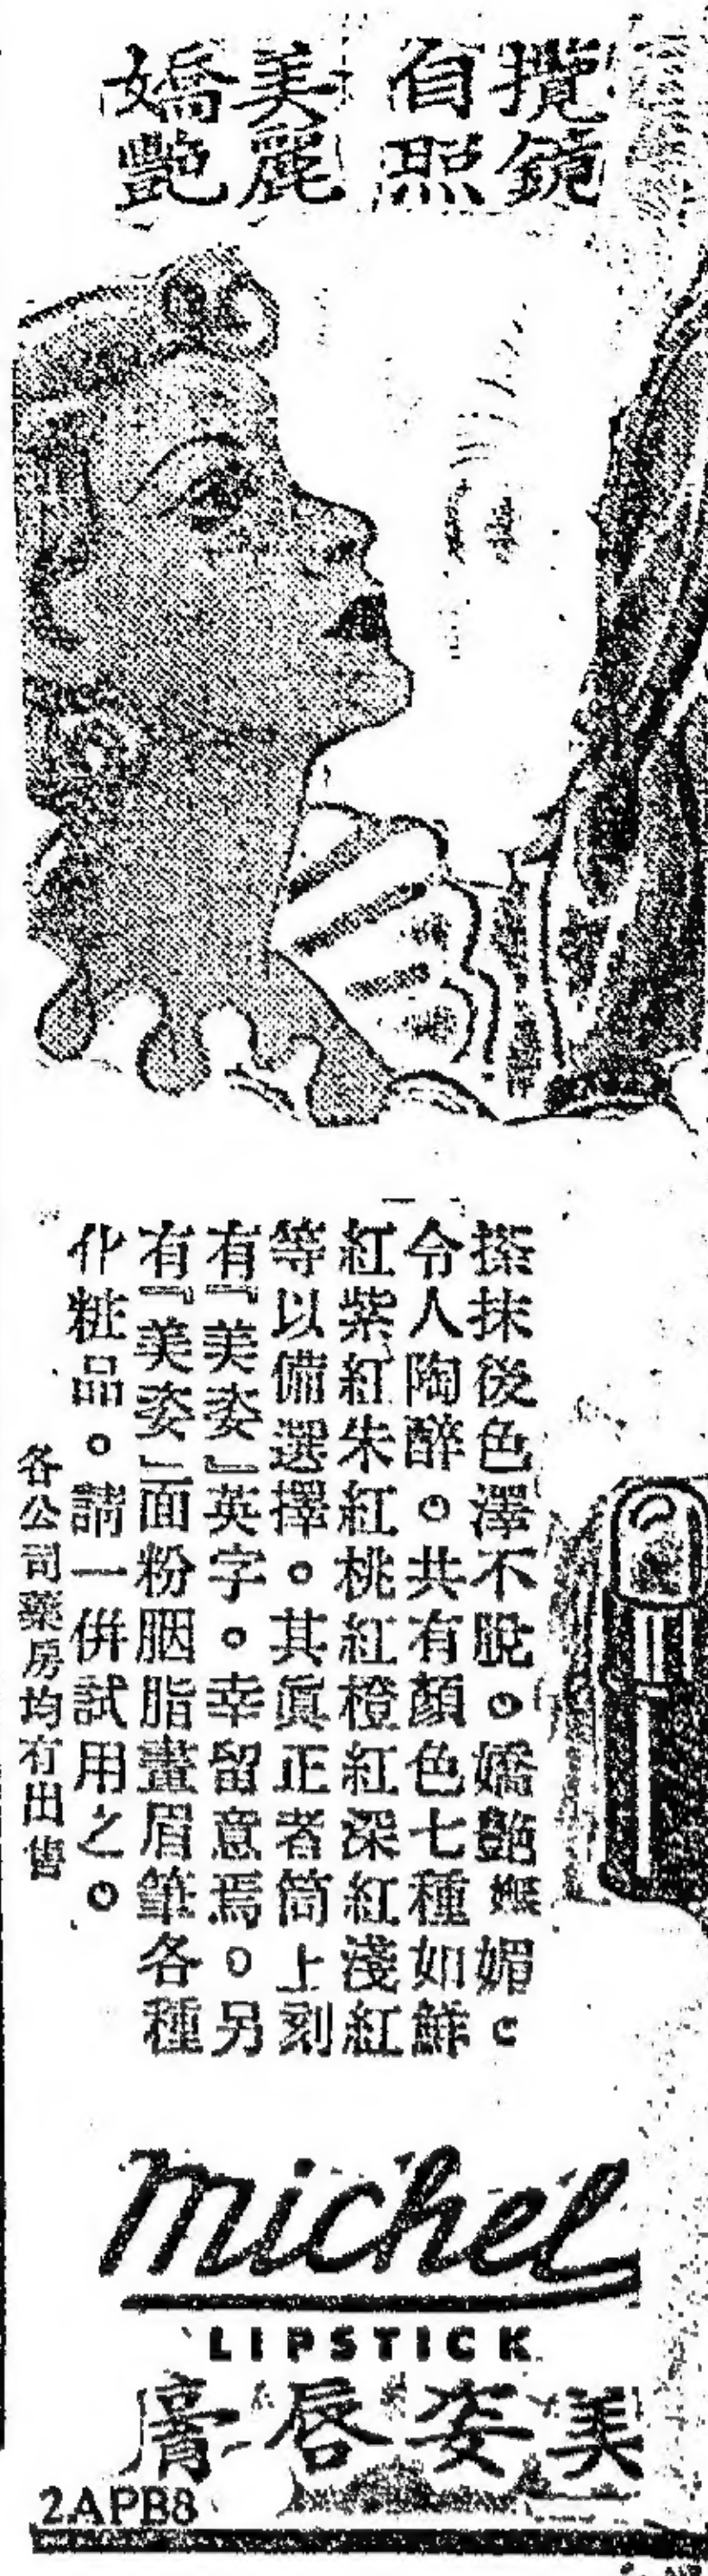 攬鏡
自照
美麗
嬌艷
搽抹後色澤不脫。嬌艷嫵媚。
令人陶醉。共有顏色七種如鮮
紅紫紅朱紅桃紅橙紅深紅淺紅
等以備選擇。其眞正者筒上刻
有『美姿』英字。幸留意焉。另
有『美姿』面粉胭脂畫眉筆各種
化粧品。請一併試用之。
各公司藥房均有出售
michel
LIPSTICK
美姿唇膏
2APB8